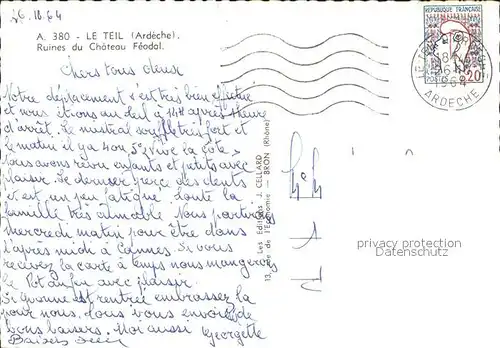 26.10.64
A. 380 - LE TEIL (Ardèche).
Ruines du Château Féodal.
RÉPUBLIQUE FRANÇAISE
0,20
POSTES
1964
ARDECHE
Chers tous deux
Notre déplacement s'est très bien effectué
et nous étions au Teil à 14h après 1 heure
d'arrêt. Le mistral souffle très fort et
le matin il y a 4 ou 5° vive la côte,
nous avons revu enfants et petits avec
plaisir. Le dernier perce des dents
et est un peu fatigué. Toute la
famille très aimable. Nous partirons
mercredi matin pour être dans
l'après midi à Cannes. Si vous
recevez la carte à temps nous mangerons
le Pot au feu avec plaisir.
Si est rentrée embrassez la
pour nous. Nous vous envoyons de
bons baisers. Moi aussi Georgette
Baisers
Les Editions J. CELLARD
13, rue de l'Economie — BRON (Rhône)
privacy protection
Datenschutz